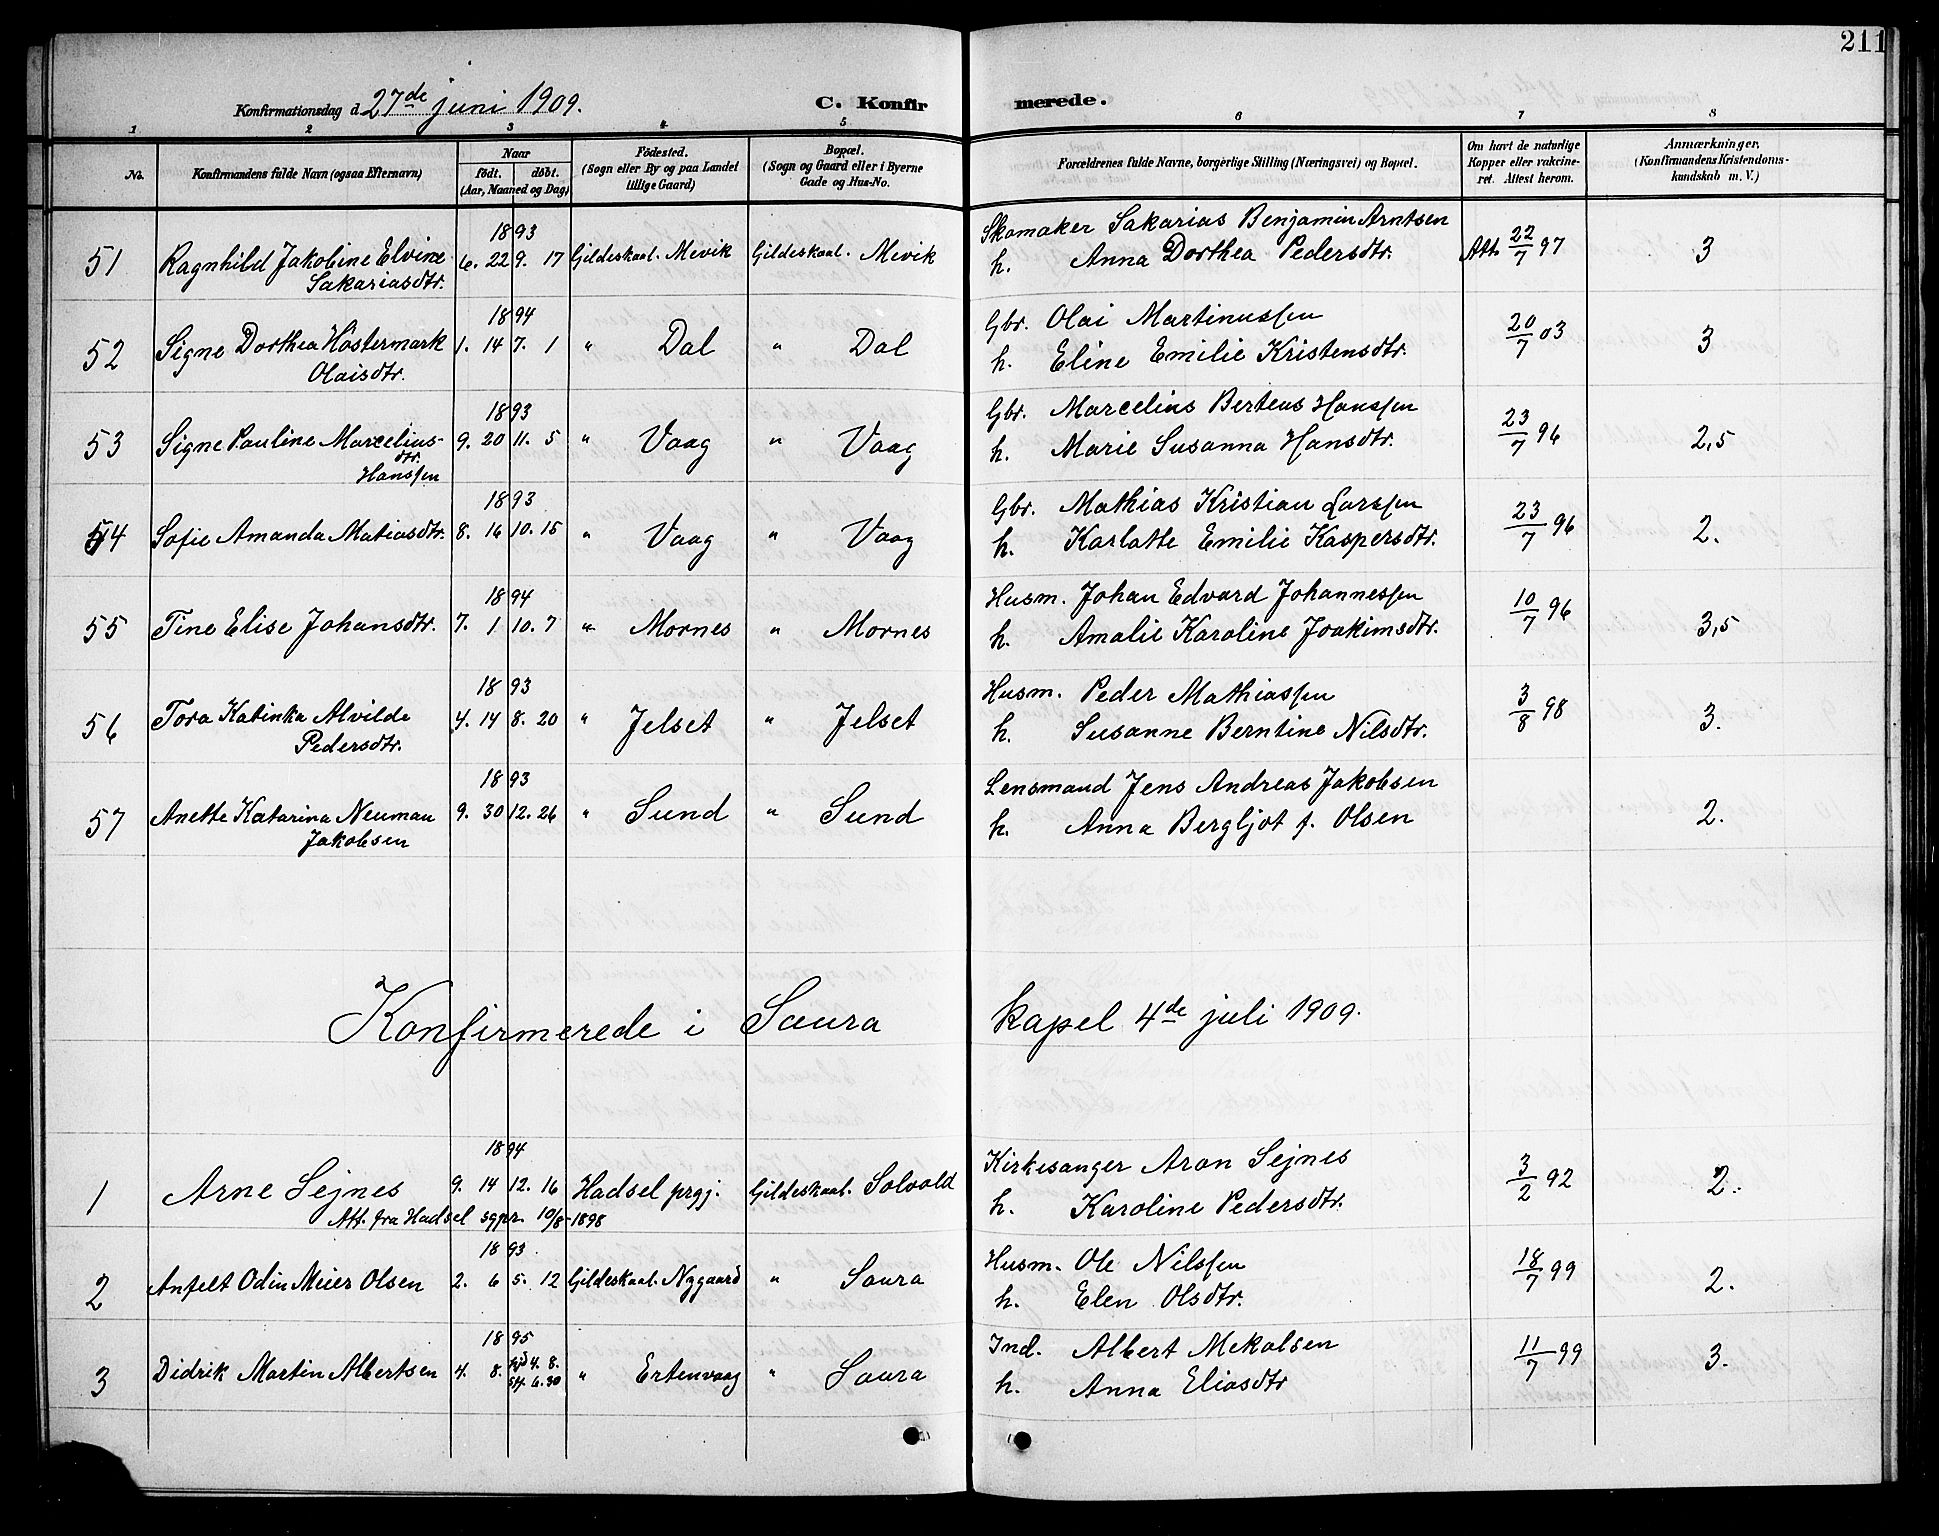 211
Konfirmationsdag d. 27de juni 1909. C. Konfirmerede.
1 2 3 4 5 6 7 8
No. Konfirmandens fulde Navn (ogsaa Efternavn) Naar födt. döbt. (Aar, Maaned og Dag) Födested. (Sogn eller By og paa Landet tillige Gaard) Bopæl. (Sogn og Gaard eller i Byerne Gade og Hus-No. Forældrenes fulde Navne, borgerlige Stilling (Næringsvei) og Bopæl. Om havt de naturlige Kopper eller vakcineret. Attest herom. Anmærkninger, (Konfirmandens Kristendomskundskab m. V.)
1893 Skomaker Sakarias Benjamin Arntsen
51 Ragnhild Jakobine Elvine 6. 22 9. 17 Gildeskaal. Mevik Gildeskaal. Mevik h. Anna Dorthea Pedersdtr. Att. 22/7 97 3
Sakariasdtr.
1894 Gbr. Olai Martinussen
52 Signe Dorthea Höstermark 1. 14 7. 1 " Dal " Dal h. Eline Emilie Kristensdtr. 20/7 03 3
Olaisdtr.
1893 Gbr. Marcelius Berteus Hanssen
53 Signe Pauline Marcelius- 9. 20 11. 5 " Vaag " Vaag h. Marie Susanna Hansdtr. 23/7 96 2,5
dtr.
Hanssen
1893 Gbr. Mathias Kristian Larssen
54 Sofie Amanda Matiasdtr. 8. 16 10. 15 " Vaag " Vaag h. Karlotte Emilie Kaspersdtr. 23/7 96 2.
1894 Husm. Johan Edvard Johannessen
55 Tine Elise Johansdtr. 7. 1 10. 7 " Mornes " Mornes h. Amalie Karoline Joakimsdtr. 10/7 96 3,5
1893 Husm. Peder Mathiassen
56 Tora Katinka Alvilde 4. 14 8. 20 " Jelset " Jelset h. Susanne Berntine Nilsdtr. 3/8 98 3.
Pedersdtr.
1893 Lensmand Jens Andreas Jakobsen
57 Anette Katarina Neuman 9. 30 12. 26 " Sund " Sund h. Anna Bergljot f. Olsen 2.
Jakobsen
Konfirmerede i Saura kapel 4de juli 1909.
1894 Kirkesanger Aron Sejnes
1 Arne Sejnes 9. 14 12. 16 Hadsel prgj. Gildeskaal. Solvold h. Karoline Pedersdtr. 3/2 92 2.
Att. fra Hadsel sgpr. 10/8-1898
1893. Husm. Ole Nilssen
2 Anfelt Odin Meier Olsen 2. 6 5. 12 Gildeskaal. Nygaard " Saura h. Elen Olsdtr. 18/7 99 2.
1895 Ind. Albert Mekalsen
3 Didrik Martin Albertsen 4. 8. hjd 4. 8. st. 6. 30 " Ertenvaag " Saura h. Anna Eliasdtr 11/7 99 3.